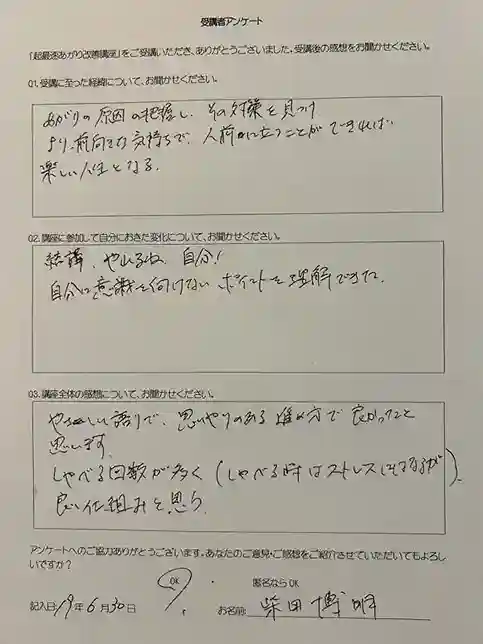 受講者アンケート
「超最速あがり改善講座」をご受講いただき、ありがとうございました。受講後の感想をお聞かせください。
Q1.受講に至った経緯について、お聞かせください。
あがりの原因の把握し、その対策を見つけ
より前向きな気持ちで、人前に立つことができれば
楽しい人生となる。
Q2.講座に参加して自分におきた変化について、お聞かせください。
結構、やれるね、自分！
自分に意識を向けない ポイントを理解できた。
Q3.講座全体の感想について、お聞かせください。
やさしい語りで、思いやりのある進め方で良かったと
思います。
しゃべる回数が多く(しゃべる時はストレスにもなるが)、
良い仕組みと思う。
アンケートへのご協力ありがとうございます。あなたのご意見・ご感想をご紹介させていただいてもよろし
いですか？
OK 匿名なら OK
記入日：19年6月30日 お名前: 柴田 博明